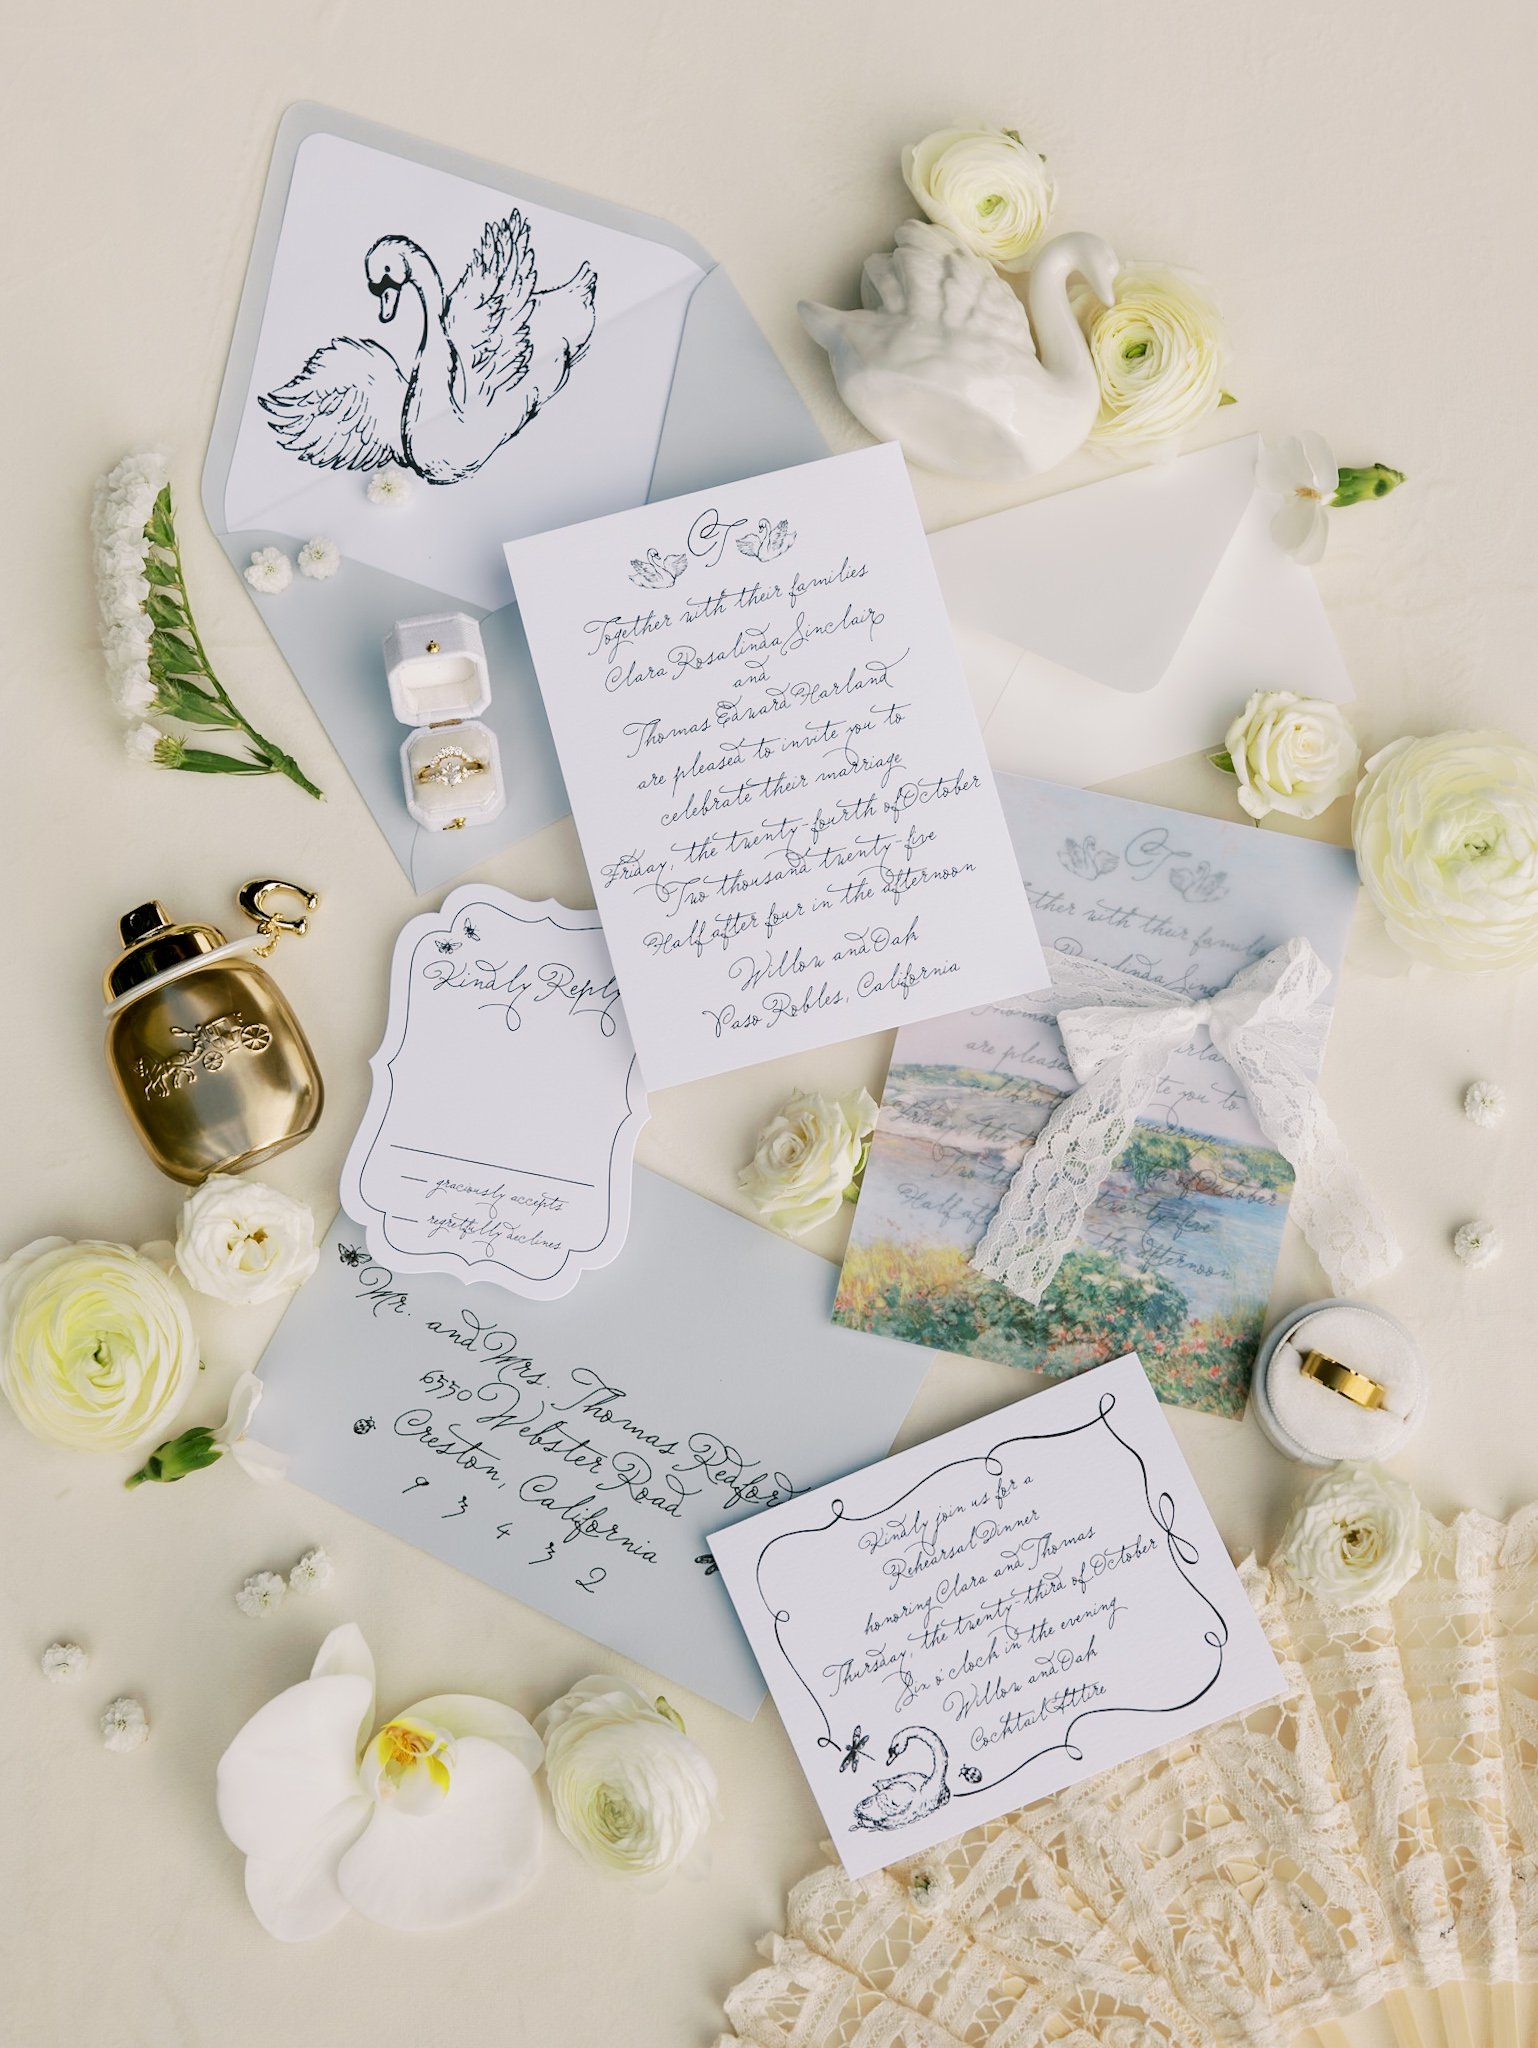 CT
Together with their families
Clara Rosalinda Sinclair
and
Thomas Edward Harland
are pleased to invite you to
celebrate their marriage
Friday, the twenty-fourth of October
Two thousand twenty-five
Half after four in the afternoon
Willow and Oak
Paso Robles, California
Kindly Reply
graciously accepts
regretfully declines
CT
with their
Rosalinda
Thomas
are pleased
you to
marriage
Two
of October
twenty-five
Half
the afternoon
Mr. and Mrs. Thomas Redford
6550 Webster Road
Creston, California
9 3 4 3 2
Kindly join us for a
Rehearsal Dinner
honoring Clara and Thomas
Thursday, the twenty-third of October
Six o'clock in the evening
Willow and Oak
Cocktail Attire